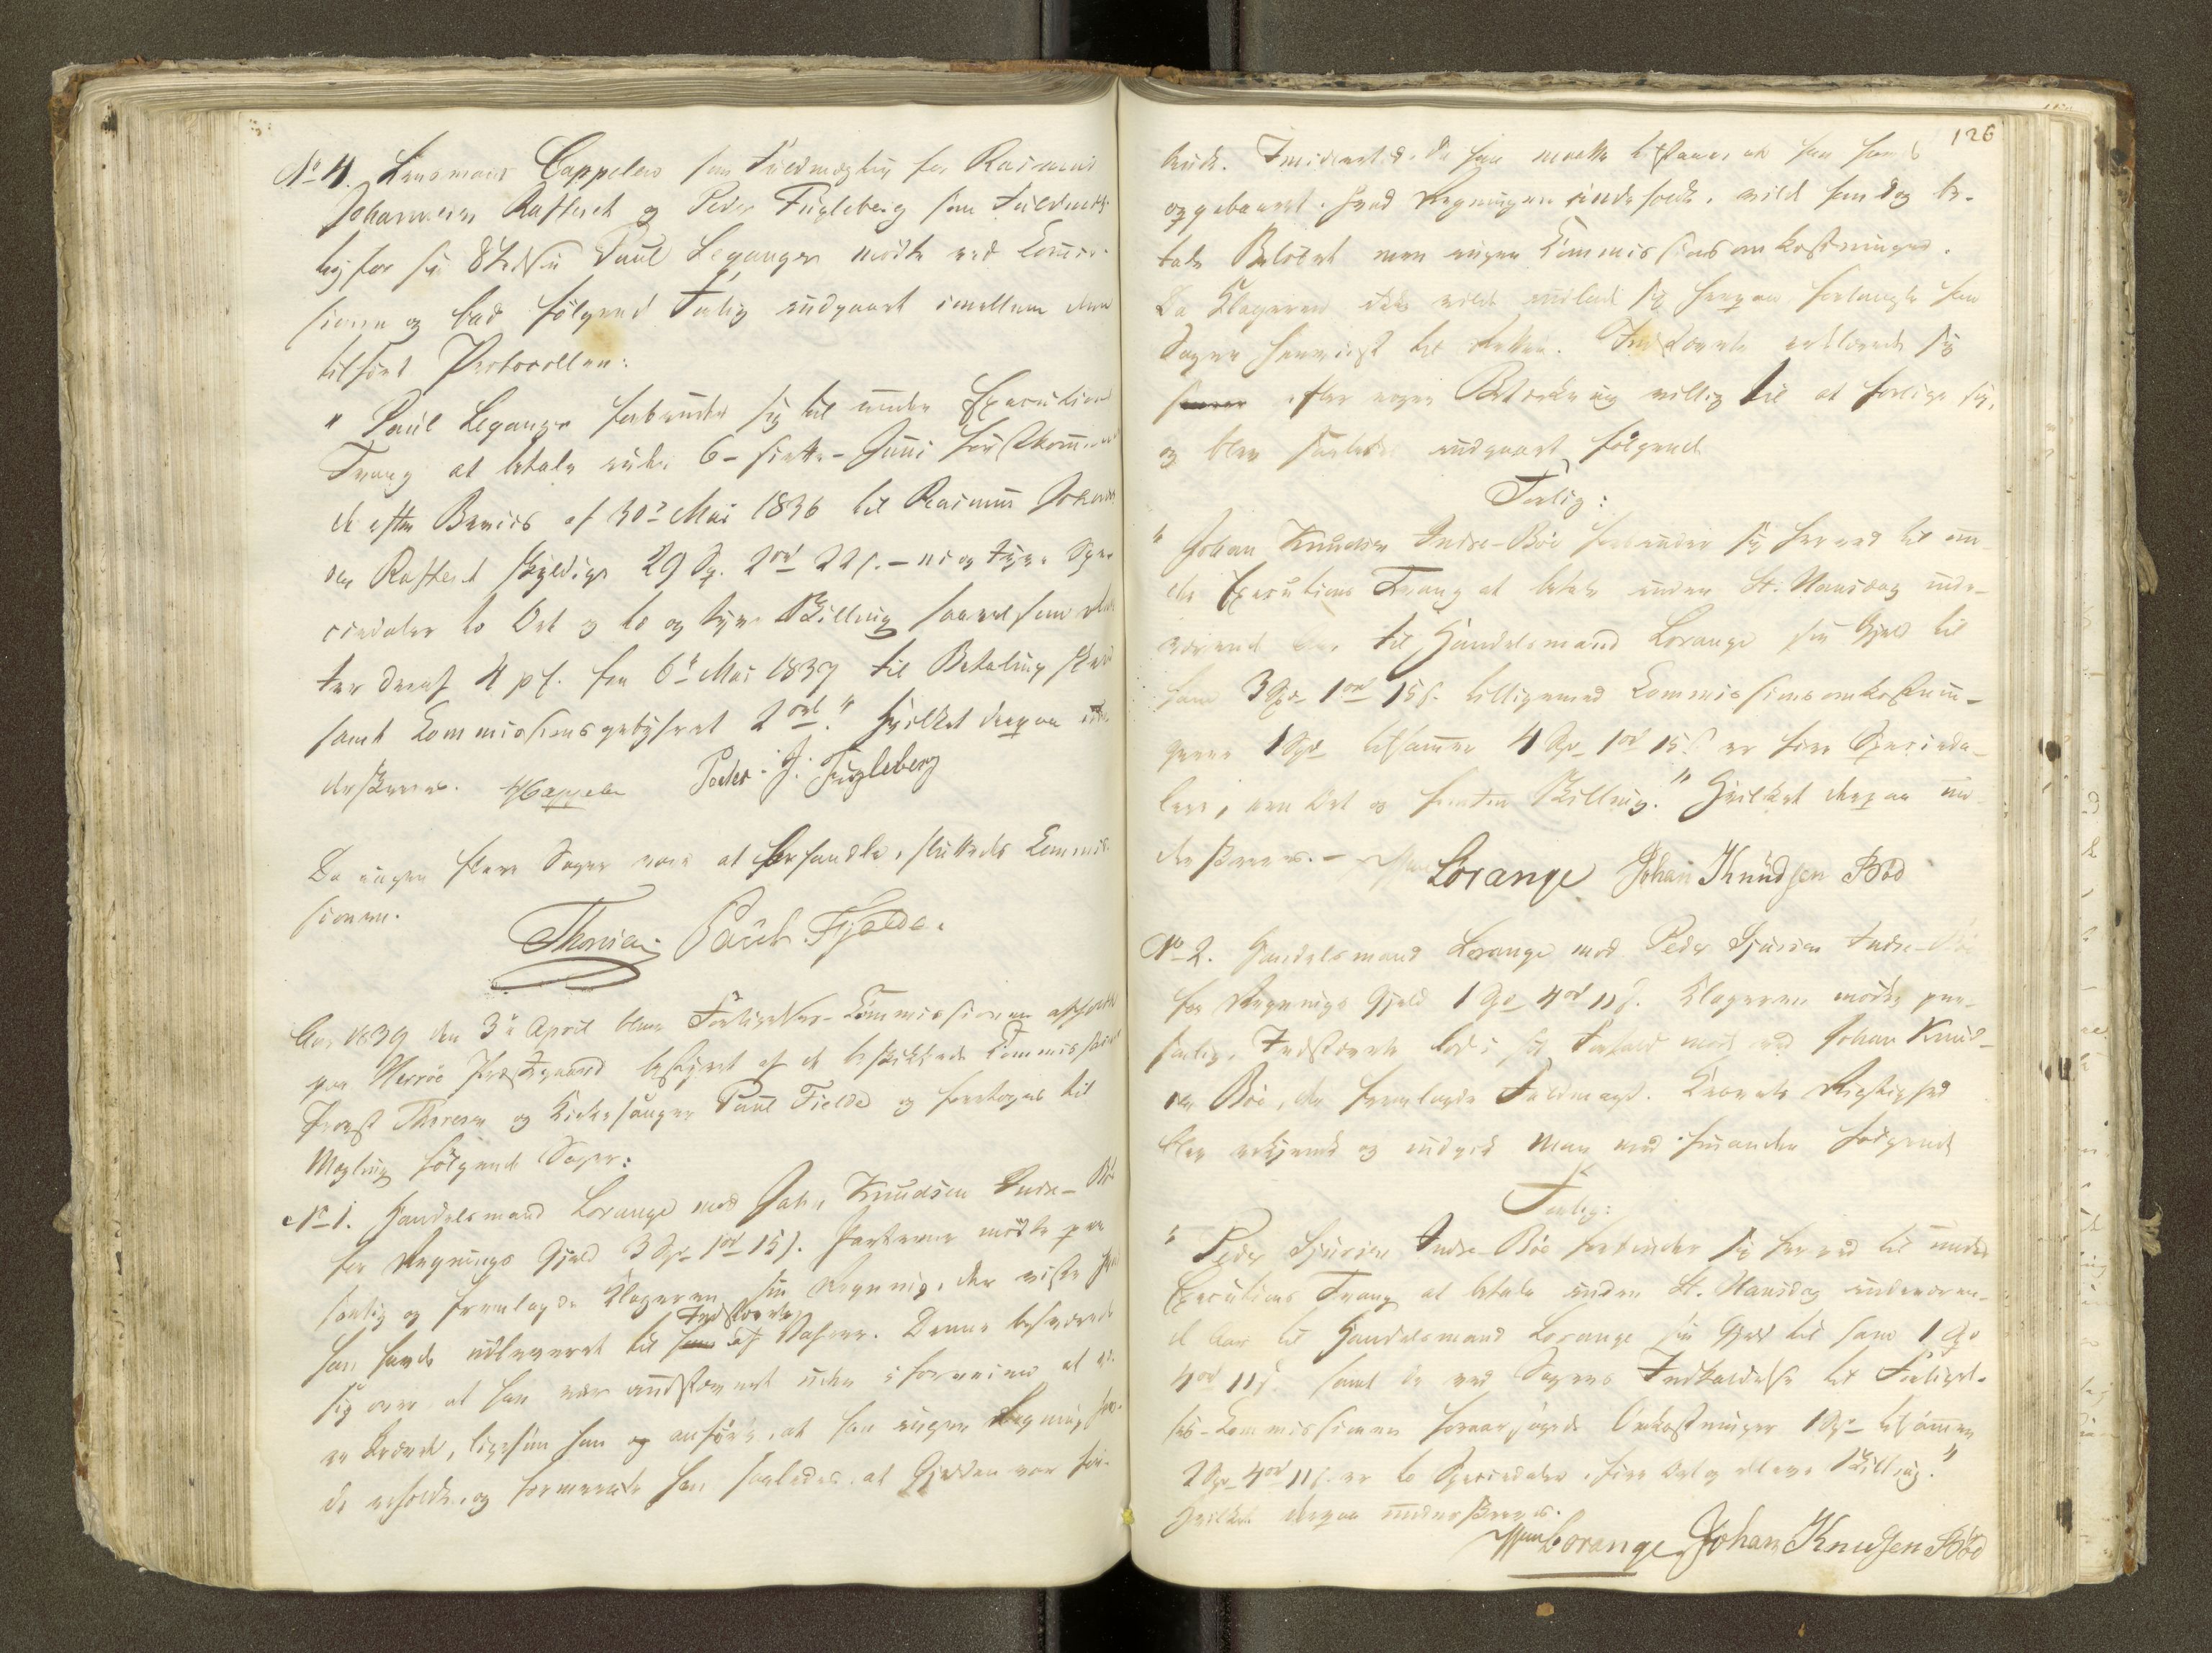 No 4. Lensmand Cappelen som Fuldmægtig for Rasmus
Johannesen Rafteset og Peder Fugleberg som Fuldmæg-
tig for sin Paul Leganger mødte ved Commis-
sionen og bad følgende Forlig indgaaet imellem dem
tilført Protocollen:
" Paul Leganger forbinder sig til under Executions
Tvang at betale inden 6 - siette - Juni førstkommen
de efter Beviis af 30 Mai 1836 til Rasmus Johanne
sen Rafteset skyldige 29 Sp. 2 ort 22 s. - ni og tyve Spe
ciedaler to Ort og to og tyve Skilling saavel som Ren
ter deraf 4 p C. fra 6te Mai 1837 til Betaling skeer
samt Commissionsgebyhret 2 ort." Hvilket derpaa un
derskreves. Cappelen Peder J. Fugleberg
Da ingen flere Sager var at forhandle, sluttedes Commis-
sionen.
Thoresen Paul Fjelde.
Aar 1839 den 3die April blev Forligelses-Commissionen afholdt
paa Herröe Præstegaard bestyret af de beskikkede Commissairer
Provst Thoresen og Kirkesanger Paul Fielde og foretoges til
Mægling følgende Sager:
No 1. Handelsmand Lorange mod Johan Knudsen Indre-Bö
for Regnings Gjeld 3 Sp 1 ort 15 s. Parterne mødte per
sonlig og fremlagde Klageren sin Regning, der viste hvad
Indstævnte
han havde udleveret til af Vahrer. Denne besværede
sig over at han var indstævnet uden i Forveien at
være krævet, ligesom han og anførte, at han ingen Regning hav-
de erholdt, og formeente han saaledes at Gjelden var for-
126
Imidlertid, da han maatte tilstaae, at han havde
oppebaaret hvad Regningen indeholdt, vilde han dog be-
tale Beløbet men ingen Commissionsomkostninger.
Da Klageren ikke vilde indlade sig herpaa forlangte han
Sagen henviist til Retten. Indstævnte erklærede sig
efter nogen Betænkning villig til at forlige sig,
og blev saaledes indgaaet følgende
Forlig:
" Johan Knudsen Indre-Böe forbinder sig herved til un-
der Executions Tvang at betale inden St. Hansdag inde-
værende Aar til Handelsmand Lorange sin Gjeld til
ham 3 Spd 1 ort 15 s. tilligemed Commissionsomkostnin-
gerne 1 Spd tilsammen 4 Spd 1 ort 15 s er fire Specieda-
ler, een Ort og femten Skilling." Hvilket derpaa un-
derskreves. - Lorange Johan Knudsen Böe
No 2. Handelsmand Lorange mod Peder Sjursen Indre-Böe
for Regnings Gjeld 1 Spd 4 ort 11 s. Klageren mødte per-
sonlig. Indstævnte lod i sit Forfald møde ved Johan Knud-
sen Böe, der fremlagde Fuldmagt. Kravets Rigtighed
blev erkjendt og indgik Man med hinanden følgende
Forlig:
" Peder Sjursen Indre-Böe forbinder sig herved til under
Executions Tvang at betale inden St. Hansdag indeværen-
de Aar til Handelsmand Lorange sin Gjeld til ham 1 Spd
4 ort 11 s samt de ved Sagens Indkaldelse til Forligel-
ses-Commissionen foraarsagede Omkostninger 1 Spd tilsammen
2 Spd 4 ort 11 s er to Speciedaler, fire Ort og elleve Skilling."
Hvilket derpaa underskreves.
Lorange Johan Knudsen Böe